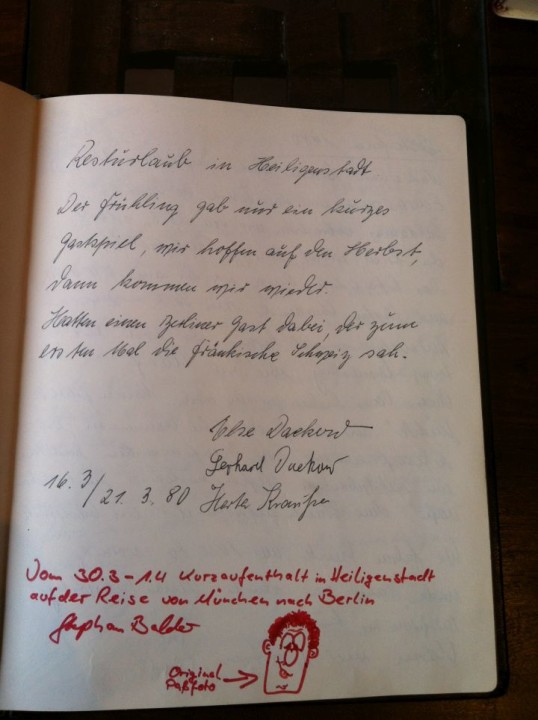 Resturlaub in Heiligenstadt
Der Frühling gab nur ein kurzes
Gastspiel, wir hoffen auf den Herbst,
dann kommen wir wieder.
Hatten einen Berliner Gast dabei, der zum
ersten Mal die Fränkische Schweiz sah.
Else Dackow
Gerhard Dackow
16. 3/21. 3. 80 Herta Krauße
Vom 30.3-1.4 Kurzaufenthalt in Heiligenstadt
auf der Reise von München nach Berlin
Stephan
Original
Paßfoto